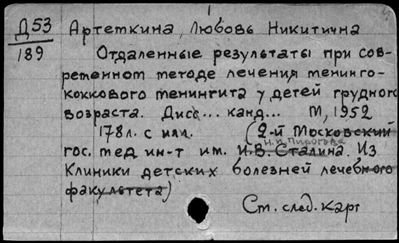 Д53
189
Артеткина, Любовь Никитична
Отдаленные результаты при сов-
ременном методе лечения менинго-
коккового менингита у детей грудного
возраста. Дисс... канд... М, 1952
178л. с илл. (2-й Московский
Н.И. Пирогова
гос. мед ин-т им. И.В. Сталина. Из
Клиники детских болезней лечебного
факультета)
См. след. карт